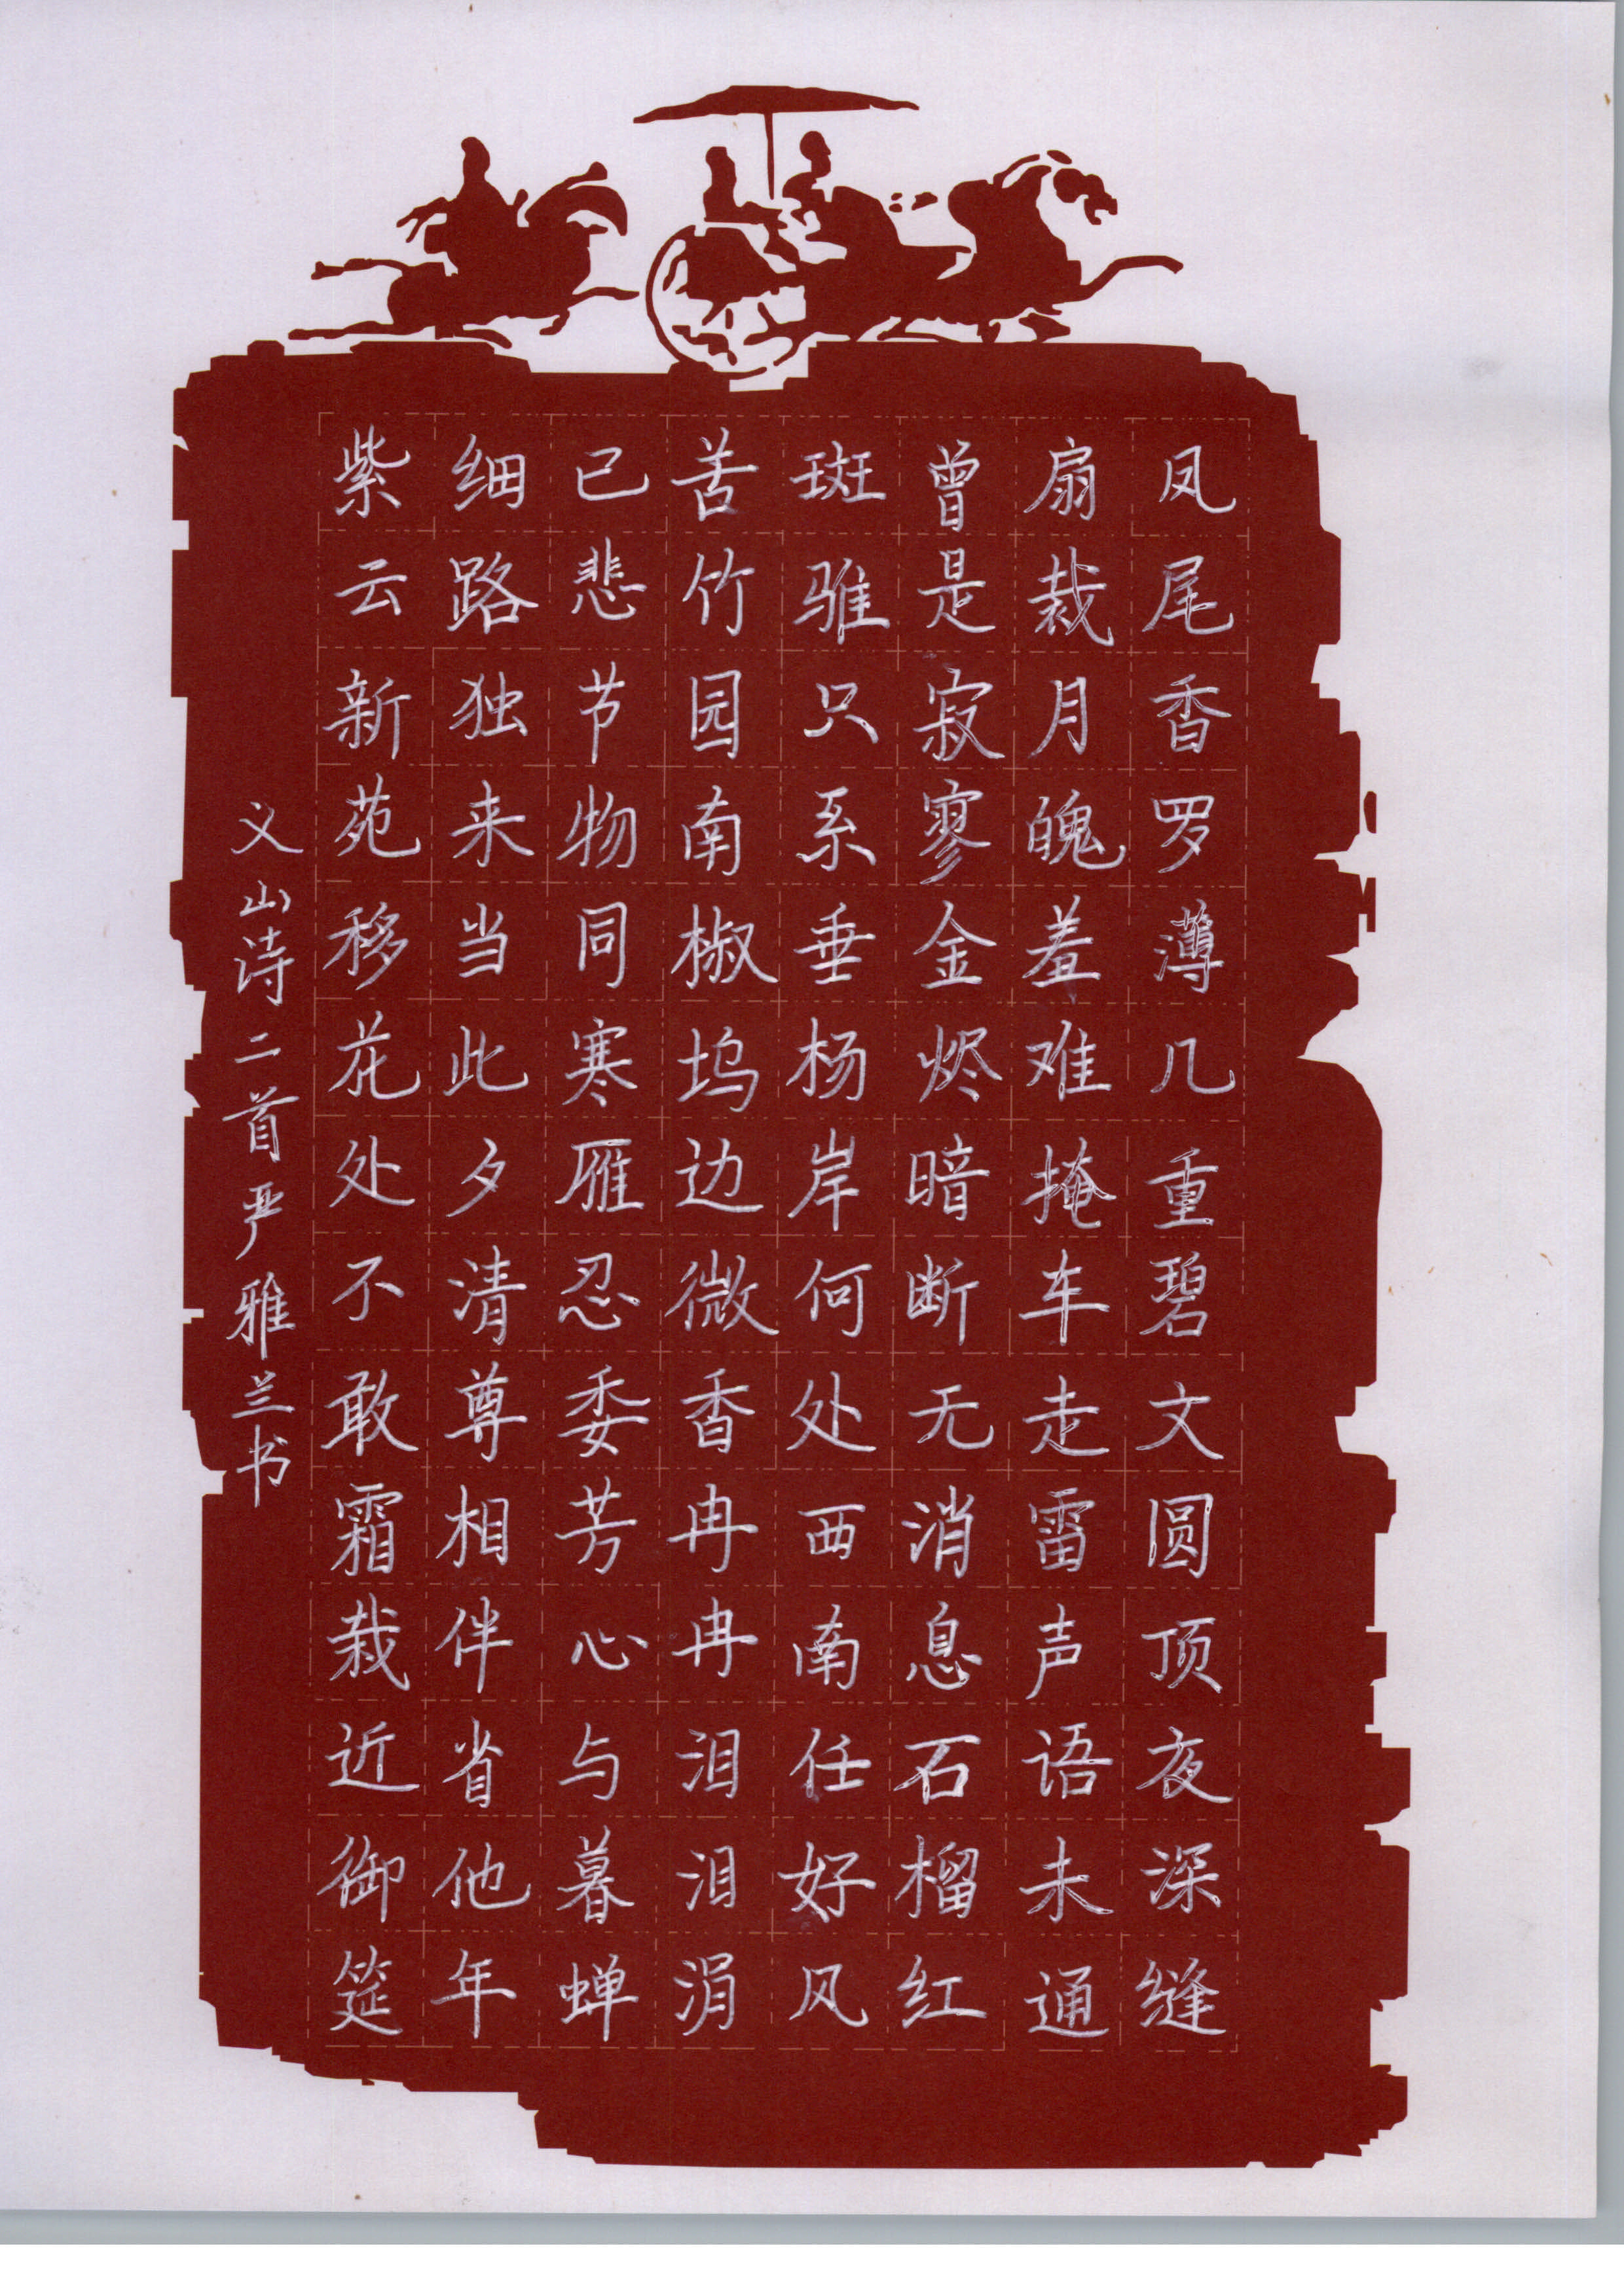 凤尾香罗薄几重碧文圆顶夜深缝
扇裁月魄羞难掩车走雷声语未通
曾是寂寥金烬暗断无消息石榴红
斑骓只系垂杨岸何处西南任好风
苦竹园南椒坞边微香冉冉泪泪涓
已悲节物同寒雁忍委芳心与暮蝉
细路独来当此夕清尊相伴省他年
紫云新苑移花处不敢霜栽近御筵
义山诗二首严雅兰书